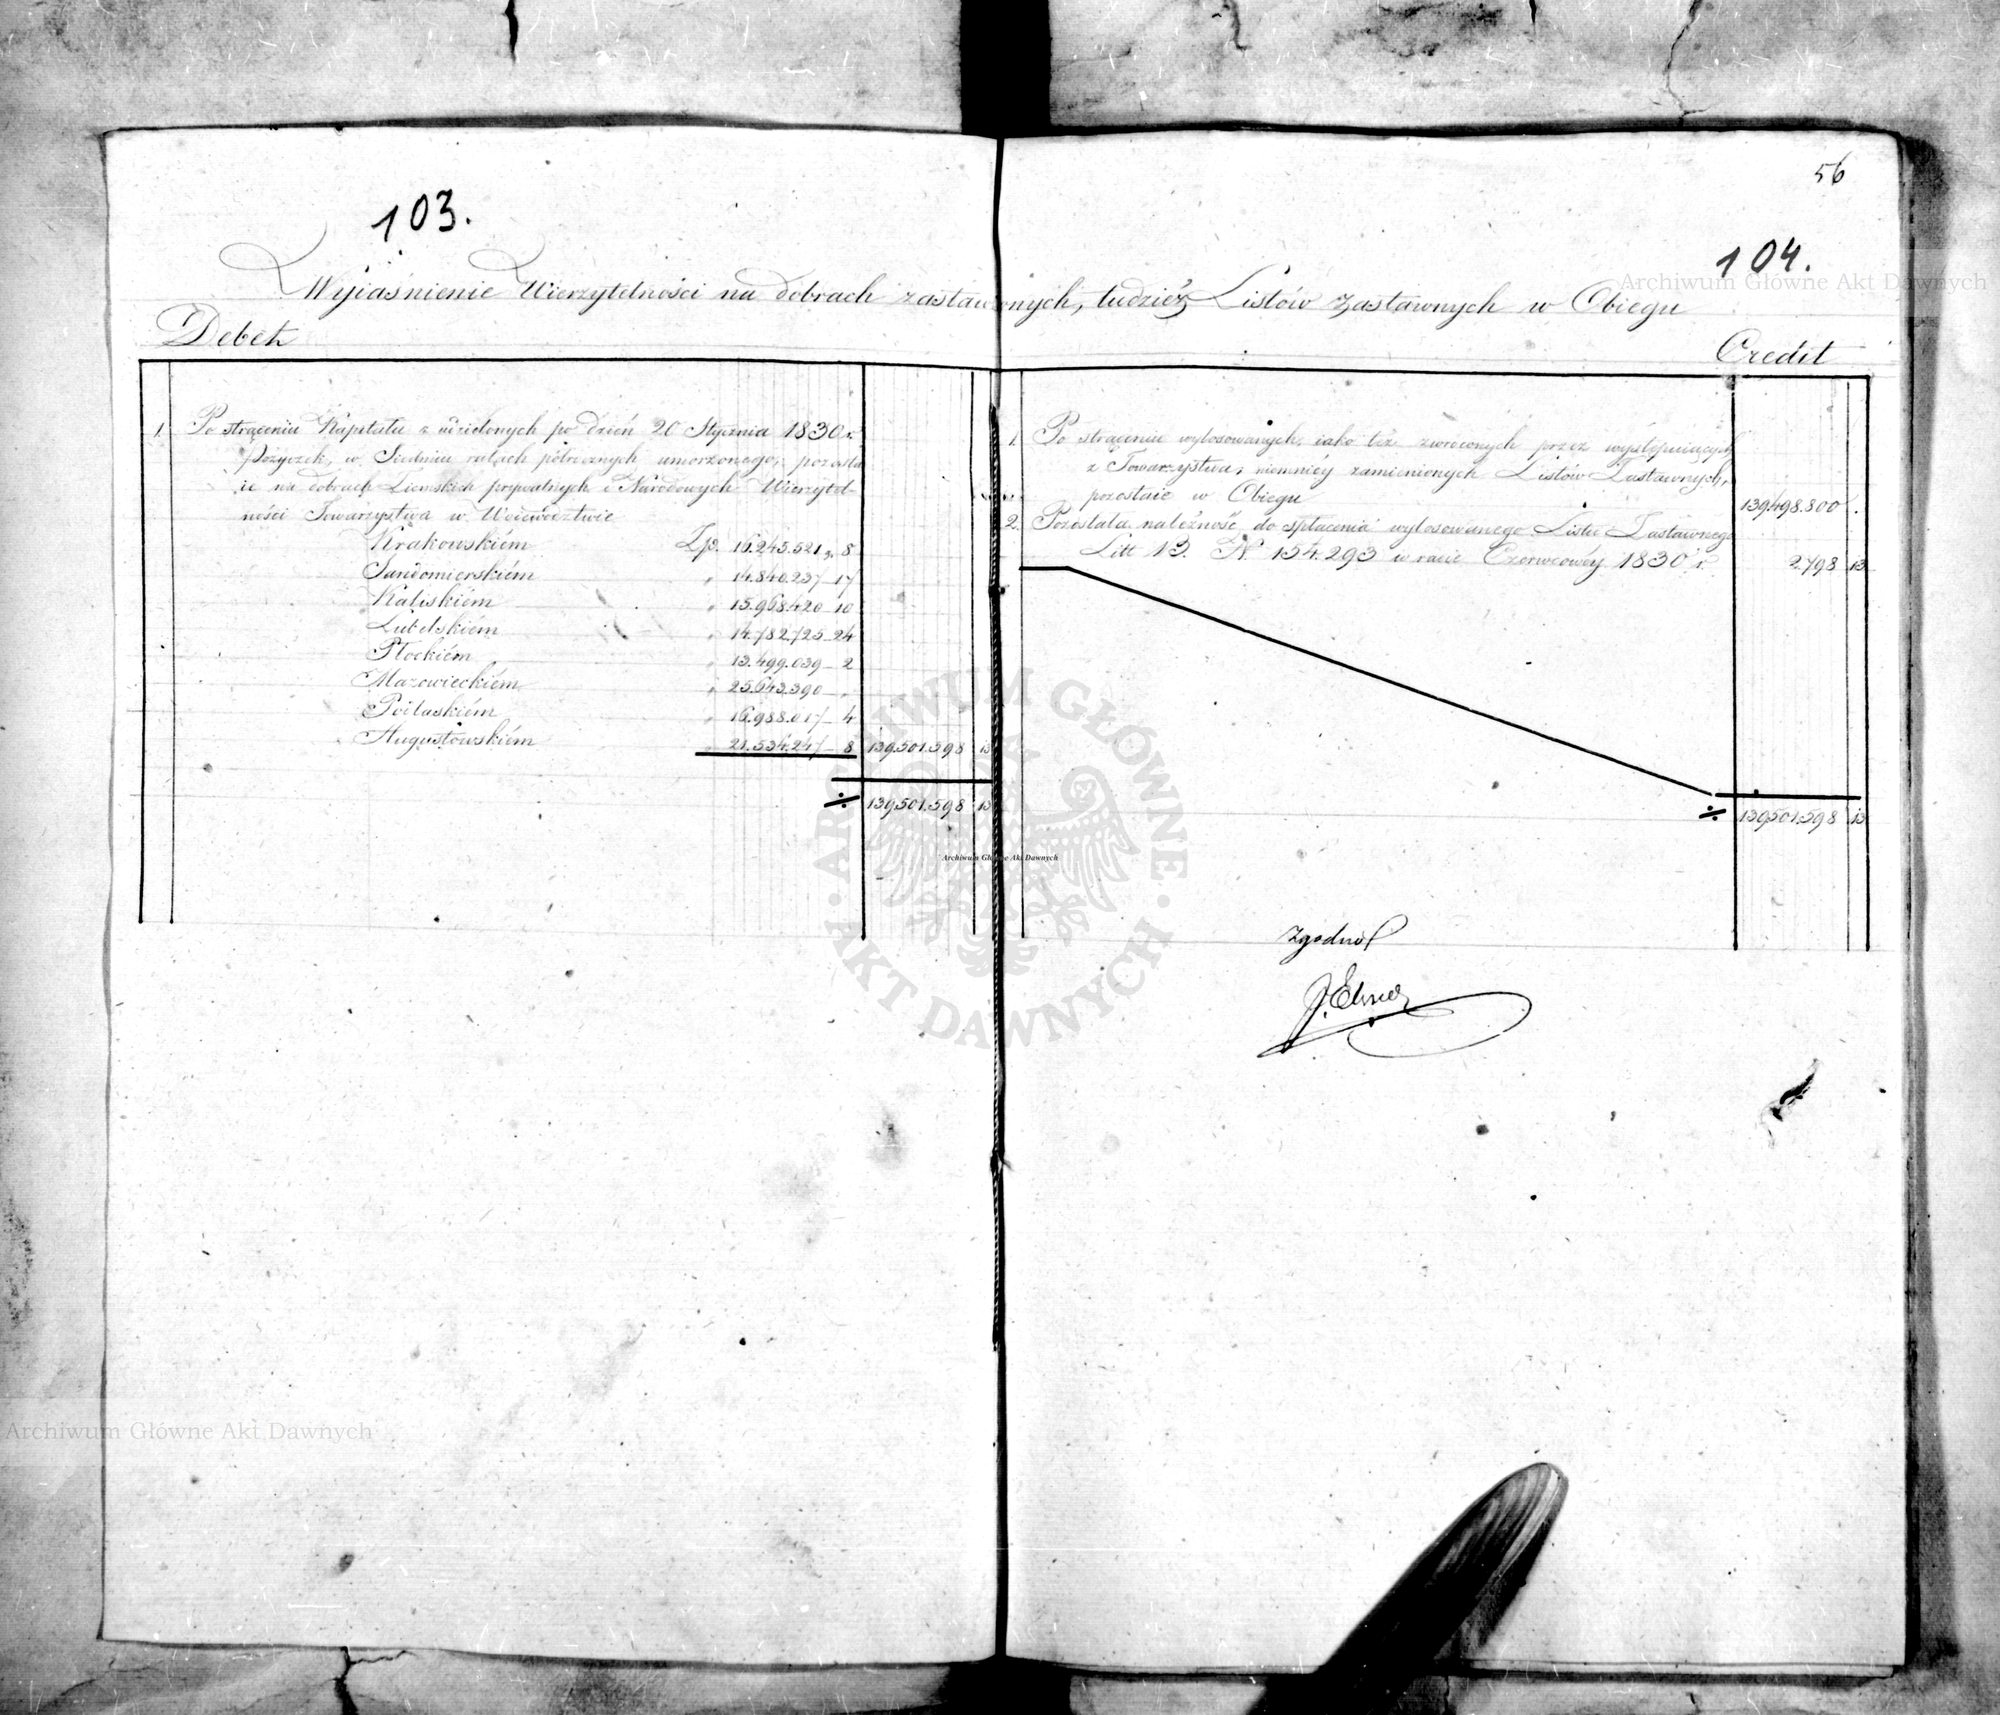 56
103.
104.
Wyiaśnienie Wierzytelności na dobrach zastawionych, tudzież Listów Zastawnych w Obiegu
Debet
Credit
1. Po strąceniu Kapitału z udzielonych po dzień 20 Stycznia 1830 r.
Pożyczek, w Siedmiu ratach półrocznych umorzonego, pozosta
ie na dobrach Ziemskich prywatnych i Narodowych Wierzytel-
ności Towarzystwa w Woiewództwie
Krakowskiém Zp. 16.245.521 g. 8
Sandomierskiém " 14.840.237 - 17
Kaliskiém " 15.968.420 - 10
Lubelskiém " 14.782.725 - 24
Płockiém " 13.499.039 - 2
Mazowieckiém " 25.643.390 - "
Podlaskiém " 16.988.017 - 4
Augustowskiém " 21.534.247 - 8 139.501.598 13
÷ 139.501.598 13
1. Po strąceniu wylosowanych, iako też zwróconych przez występuiących
z Towarzystwa, niemniéy zamienionych Listów Zastawnych,
pozostaie w Obiegu 139.498.800 .
2. Pozostała należność do spłacenia wylosowanego Listu Zastawnego
Litt B. N 154.293 w racie Czerwcowéy 1830 r. 2.798 13
÷ 139.501.598 13
Zgodno
Archiwum Główne Akt Dawnych
Archiwum Główne Akt Dawnych
Archiwum Główne Akt Dawnych
ARCHIWUM GŁÓWNE · AKT DAWNYCH ·